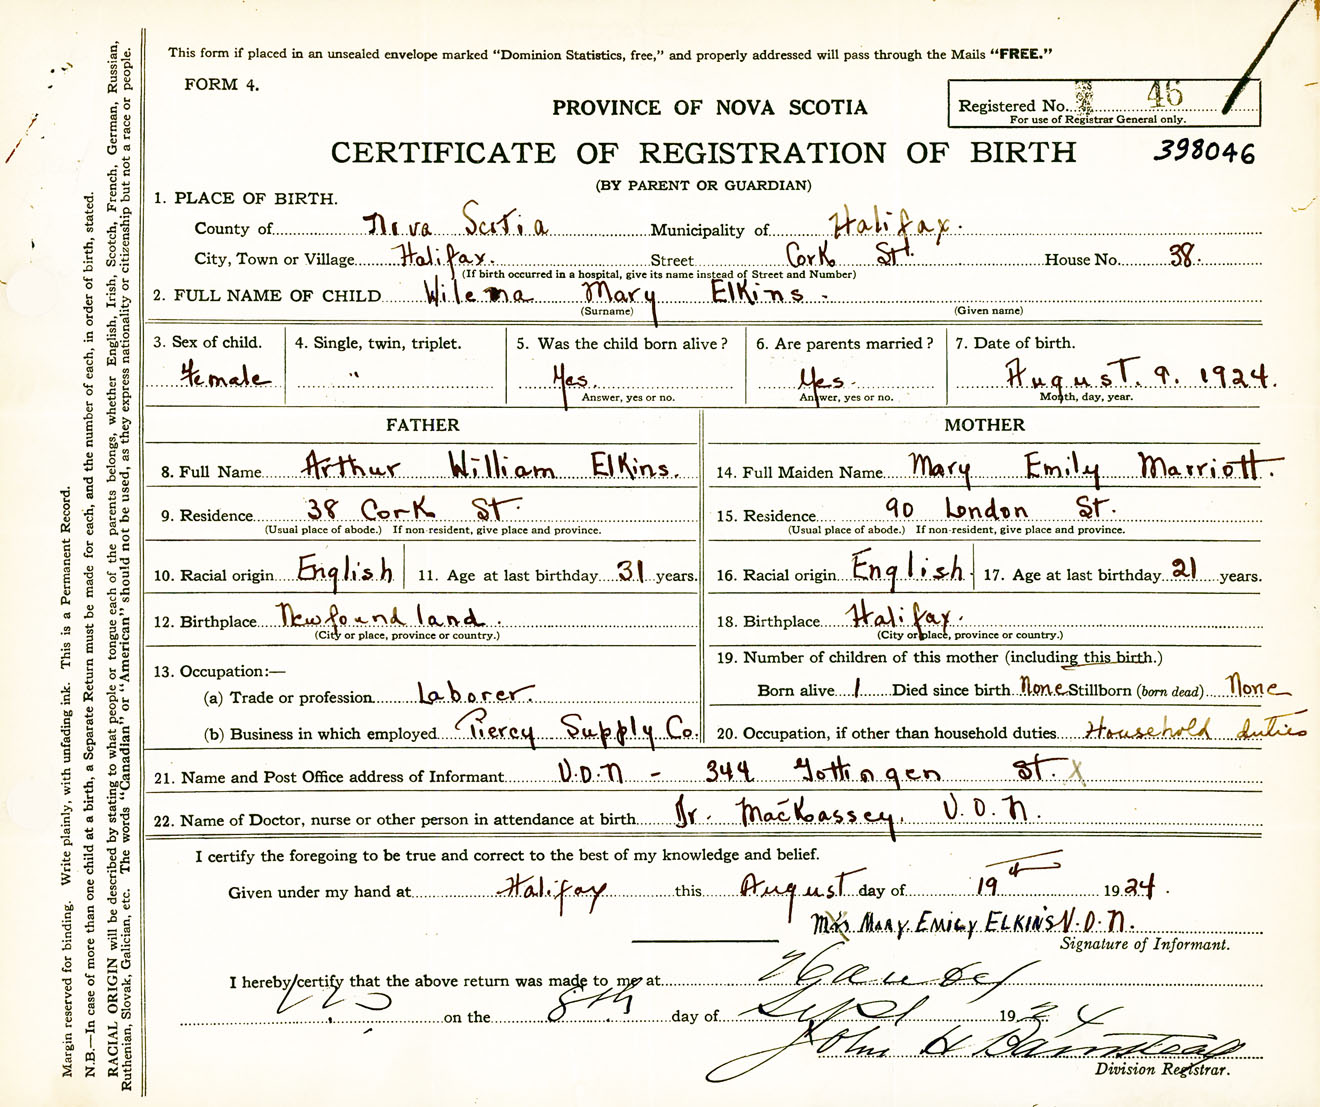 This form if placed in an unsealed envelope marked “Dominion Statistics, free,” and properly addressed will pass through the Mails “FREE.”
FORM 4.
Registered No. 46
For use of Registrar General only.
PROVINCE OF NOVA SCOTIA
CERTIFICATE OF REGISTRATION OF BIRTH 398046
(BY PARENT OR GUARDIAN)
1. PLACE OF BIRTH.
County of Nova Scotia Municipality of Halifax.
City, Town or Village Halifax. Street Cork St. House No. 38.
(If birth occurred in a hospital, give its name instead of Street and Number)
2. FULL NAME OF CHILD Wilema Mary Elkins.
(Surname) (Given name)
3. Sex of child. 4. Single, twin, triplet. 5. Was the child born alive? 6. Are parents married? 7. Date of birth.
Female " Yes. Yes. August. 9. 1924.
Answer, yes or no. Answer, yes or no. Month, day, year.
FATHER MOTHER
8. Full Name Arthur William Elkins. 14. Full Maiden Name Mary Emily Marriott.
9. Residence 38 Cork St. 15. Residence 90 London St.
(Usual place of abode.) If non-resident, give place and province. (Usual place of abode.) If non-resident, give place and province.
10. Racial origin English 11. Age at last birthday 31 years. 16. Racial origin English. 17. Age at last birthday 21 years.
12. Birthplace Newfoundland. 18. Birthplace Halifax.
(City or place, province or country.) (City or place, province or country.)
13. Occupation:— 19. Number of children of this mother (including this birth.)
(a) Trade or profession Laborer. Born alive 1 Died since birth None Stillborn (born dead) None
(b) Business in which employed Piercy Supply Co. 20. Occupation, if other than household duties Household duties
21. Name and Post Office address of Informant V.O.N - 344 Gottingen St. X
22. Name of Doctor, nurse or other person in attendance at birth Dr. MacKassey, V.O.N.
I certify the foregoing to be true and correct to the best of my knowledge and belief.
Given under my hand at Halifax this August day of 19th 1924.
Mrs Mary Emily Elkins V.O.N.
Signature of Informant.
I hereby certify that the above return was made to me at Halifax
N.S on the 8th day of Sept 1924
John H Barnstead
Division Registrar.
Margin reserved for binding. Write plainly, with unfading ink. This is a Permanent Record.
N.B.—In case of more than one child at a birth, a Separate Return must be made for each, and the number of each, in order of birth, stated.
RACIAL ORIGIN will be described by stating to what people or tongue each of the parents belongs, whether English, Irish, Scotch, French, German, Russian,
Ruthenian, Slovak, Galician, etc. The words “Canadian” or “American” should not be used, as they express nationality or citizenship but not a race or people.